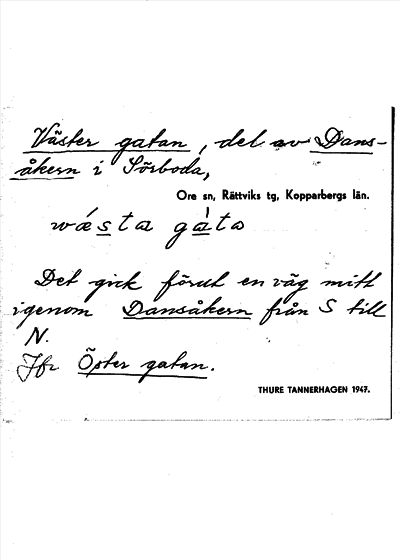 Väster gatan, del av Dans-
åkern i Sörboda,
Ore sn, Rättviks tg, Kopparbergs län.
wǽsta gàta
Det gick förut en väg mitt
igenom Dansåkern från S till
N.
Jfr Öster gatan.
THURE TANNERHAGEN 1947.